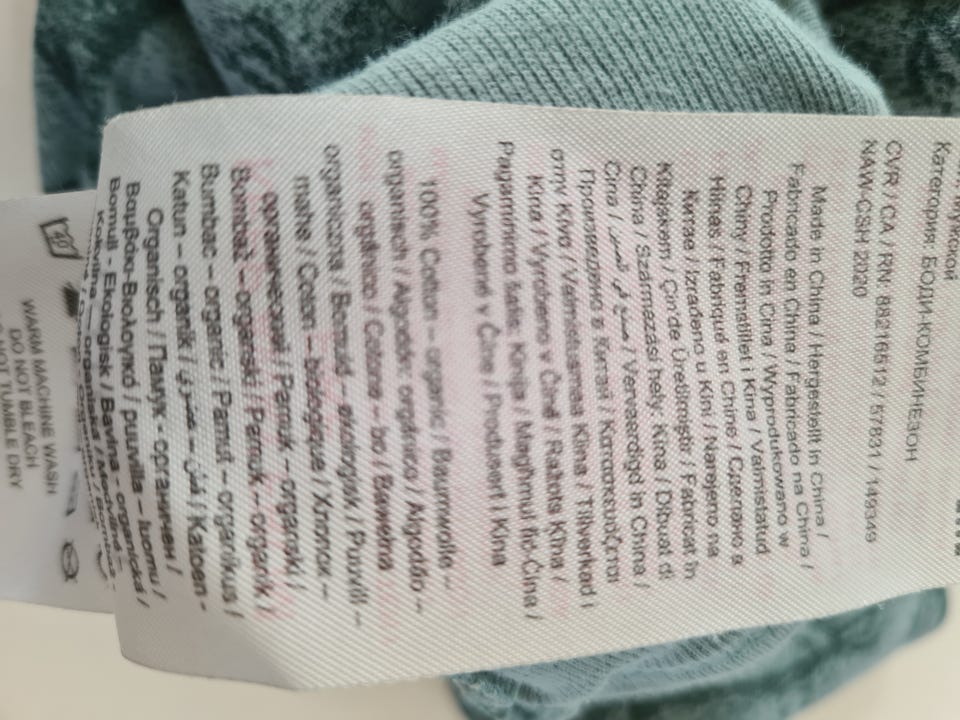 Категория БОДИ-КОМБИНЕЗОН
CVR / CA / RN: 88216512 / 57831 / 149349
NAW-CSH 2020
Made in China / Hergestellt in China /
Fabricado en China / Fabricado na China /
Prodotto in Cina / Wyprodukowano w
Chiny / Fremstillet i Kina / Valmistatud
Hiinas / Fabriqué en Chine / Сделано в
Китае / Izrađeno u Kini / Narejeno na
Kitajskem / Çin'de Üretilmiştir / Fabricat în
China / Származási hely: Kína / Dibuat di
Cina / صنع في الصين / Vervaardigd in China /
Произведено в Китай / Κατασκευάζεται
στην Κίνα / Valmistusmaa Kiina / Tillverkad i
Kina / Vyrobeno v Číně / Ražots Ķīnā /
Pagaminimo šalis: Kinija / Magħmul fiċ-Ċina /
Vyrobené v Číne / Produsert i Kina
100% Cotton – organic / Baumwolle –
organisch / Algodón: orgánico / Algodão –
orgânico / Cotone – bio / Bawełna
organiczna / Bomuld – økologisk / Puuvill –
mahe / Coton – biologique / Хлопок –
органический / Pamuk – organski /
Bombaž – organski / Pamuk – organik /
Bumbac – organic / Pamut – organikus /
Katun – organik / قطن – عضوي / Katoen -
Organisch / Памук - органичен /
Βαμβάκι-Βιολογικό / puuvilla – luomu /
Bomull - Ekologisk / Bavlna - organická /
Kokvilna - organiskā / Medvilnė -
WARM MACHINE WASH
DO NOT BLEACH
DO NOT TUMBLE DRY